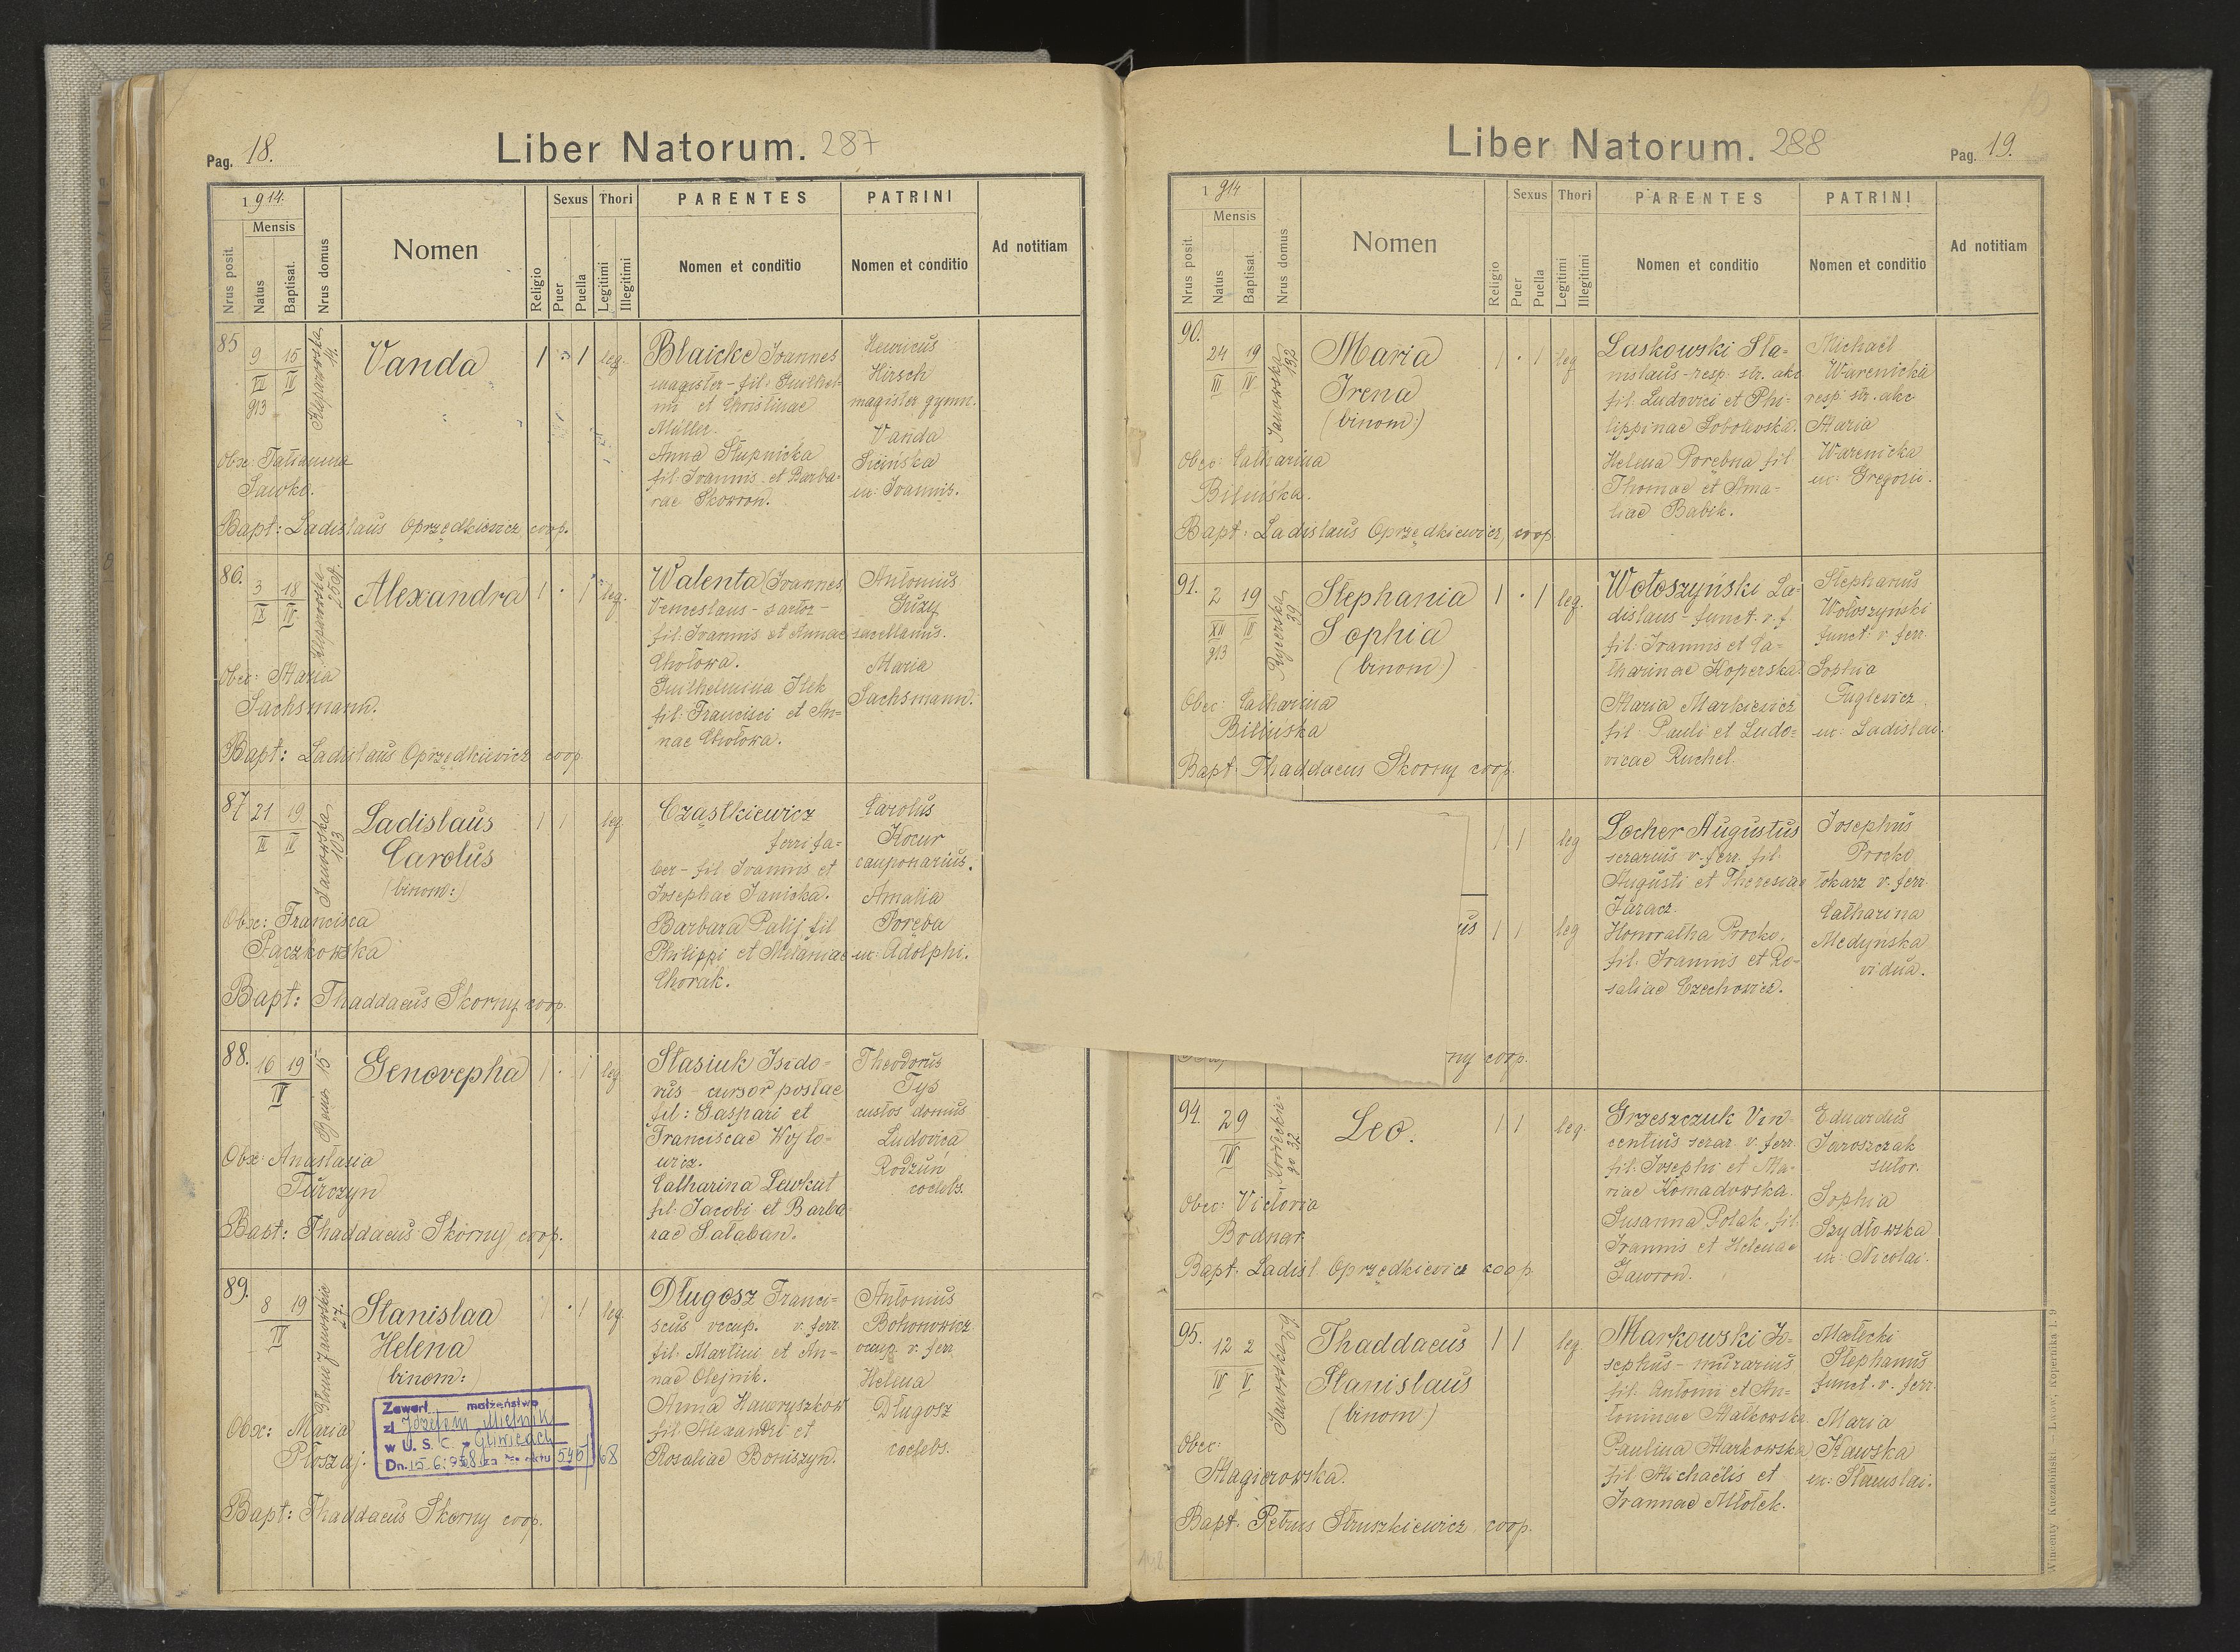 Pag. 18.
Liber Natorum. 287
1914.
Mensis
Nrus posit.
Natus
Baptisat.
Nrus domus
Nomen
Religio
Sexus
Puer
Puella
Thori
Legitimi
Illegitimi
PARENTES
Nomen et conditio
PATRINI
Nomen et conditio
Ad notitiam
85
9 15
IV
913
Kleparowska
14.
Vanda
1 1 leg.
Blaicke Ioannes
magister - fil: Guilhel-
mi et Christinae
Müller.
Anna Słupnicka
fil: Ioannis et Barba-
rae Skowron.
Henricus
Hirsch
magister gymn.
Vanda
ux: Ioannis.
Obx: Tatianna
Sawko.
Bapt: Ladislaus Oprzędkiewicz coop.
86.
3 18
IX IV
Kleparowska
Alexandra
1 1 leg.
Walenta (Ioannes
Venceslaus - sartor -
fil: Ioannis et Annae
Chołowa.
Guilhelmina Ilek
fil: Francisci et An=
nae Chołowa.
Antonius
Guzy
sacellanus.
Maria
Sachsmann.
Obx: Maria
Sachsmann.
Bapt: Ladislaus Oprzędkiewicz coop.
87
21 19
II IV
Janowska
103
Ladislaus
Carolus
(binom:)
1 1 leg
Cząstkiewicz
ferri fa=
ber - fil Ioannis et
Josephae Janicka.
Barbara Palij fil
Philippi et Melaniae
Chorak.
Carolus
Kocur
cauponarius.
Amalia
Poręba
ux: Adolphi.
Obx: Francisca
Pączkowska
Bapt: Thaddaeus Skorny coop.
88.
16 19
IV
15
Genovepha
1 1 leg
Stasiuk Isido=
rus cursor postae
fil: Gaspari et
Franciscae Wojto-
wicz.
Catharina Lewkut
fil: Jacobi et Barba
rae Sałaban.
Theodorus
Tys
custos domus
Ludovica
Rodzuń
coelebs.
Obx: Anastasia
Turczyn
Bapt: Thaddaeus Skorny coop.
89.
8 19
IV
Janowskie
27.
Stanislaa
Helena
(binom:
1 1 leg
Długosz Franci=
scus occup. v. ferr.
fil: Martini et An=
nae Olejnik.
Anna Hawryszkow
fil Alexandri et
Rosaliae Boruszyn.
Antonius
Bohonowicz
occup. v. ferr
Helena
Długosz
coelebs.
Obx: Maria
Płoszaj.
Zawarł małżeństwo
z Józefem Mielnik
w U. S. C. w Gliwicach
Dn. 15.6.1958 za Nr aktu 545/68
Bapt: Thaddaeus Skorny coop.
Liber Natorum. 288
Pag. 19.
1914
Mensis
Nrus posit.
Natus
Baptisat.
Nrus domus
Nomen
Religio
Sexus
Puer
Puella
Thori
Legitimi
Illegitimi
PARENTES
Nomen et conditio
PATRINI
Nomen et conditio
Ad notitiam
90.
24 19
III IV
Janowska
132
Maria
Irena
(binom:)
1 1 leg
Laskowski Sta-
nislaus - resp. str. akc
fil. Ludovici et Phi-
lippinae Sobolewska.
Helena Porębna fil
Thomae et Ama-
liae Babik.
Michael
Warenicka
resp. str. akc
Maria
Warenicka
ux: Gregorii.
Obx: Catharina
Bilińska.
Bapt: Ladislaus Oprzędkiewicz, coop
91.
2 19
XII IV
913
39
Stephania
Sophia
(binom)
1 1 leg.
Wołoszyński La-
dislaus - funct. v. f.
fil: Ioannis et Ca-
tharinae Koperska.
Maria Markiewicz
fil: Pauli et Ludo=
vicae Ruchel.
Stephanus
Wołoszynski
funct: v. ferr.
Sophia
Fuglewicz
ux: Ladislai.
Obx: Catharina
Bilińska
Bapt: Thaddaeus Skorny coop.
1 1 leg
us 1 1 leg
Locher Augustus
serarius v. ferr. fil.
Augusti et Theresiae
Jaracz.
Honoratha Procko,
fil: Ioannis et Ro-
saliae Czechowicz.
Josephus
Procko
tokarz v: ferr.
Catharina
Medyńska
vidua.
ny coop.
94.
29
IV
37
Leo.
1 1 leg.
Grzeszczuk Vin-
centius serar. v. ferr.
fil: Josephi et Ma-
riae Komadowska.
Susanna Polak, fil:
Ioannis et Helenae
Gawron.
Eduardus
Jaroszczak
sutor.
Sophia
Szydłowska
ux: Nicolai.
Obx: Victoria
Bodnar
Bapt. Ladisl. Oprzędkiewicz coop.
95.
12 2
IV V
Janowska 59
Thaddaeus
Stanislaus
(binom)
1 1 leg
Markowski Jo-
sephus - murarius
fil. Antoni et An-
toninae Małkowska.
Paulina Markowska
fil Michaelis et
Ioannae Młotek.
Małecki
Stephanus
funct. v. ferr.
Maria
Kawska
ux: Stanislai.
Obx:
Magierowska.
Bapt. Petrus Struszkiewicz coop.
Wincenty Kuczabiński - Lwów, Kopernika l. 9